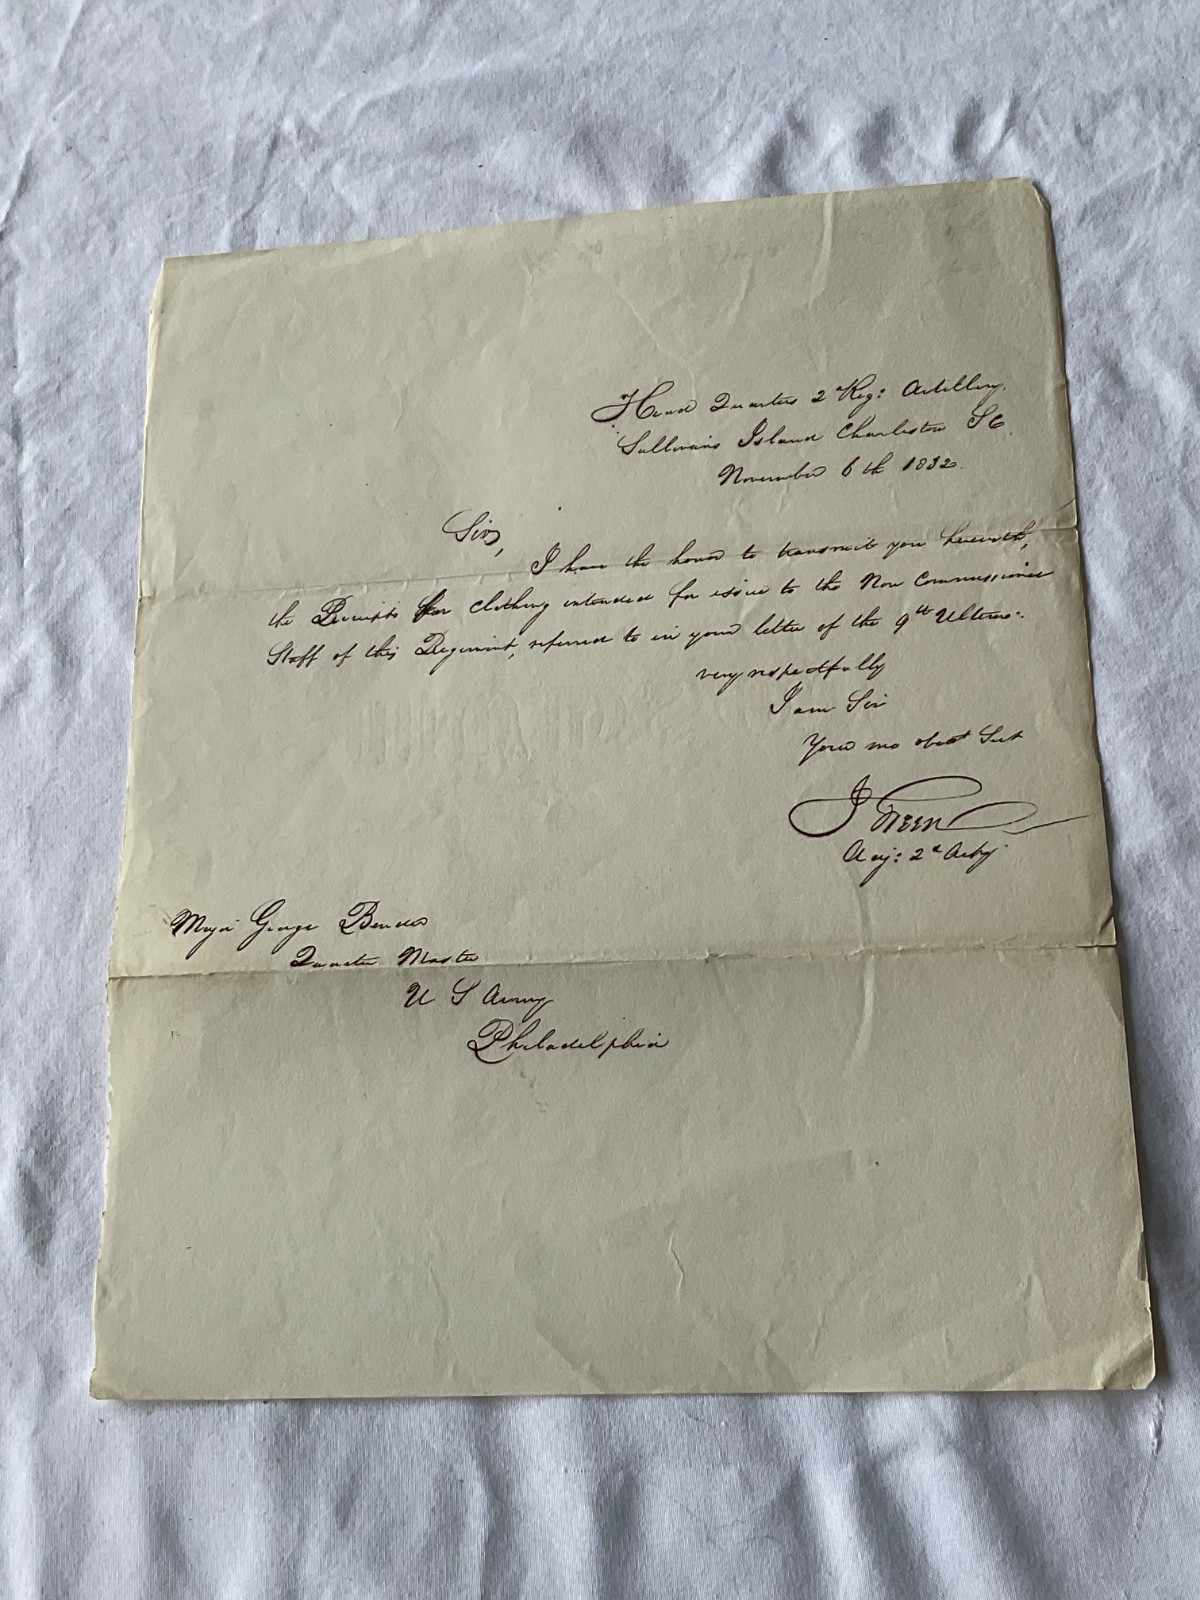 Head Quarters 2d Reg: Artillery.
Sullivans Island Charleston S C.
November 6th 1832.
Sir,
I have the honor to transmit you herewith,
the Receipts for clothing intended for issue to the Non Commissioned
Staff of this Regiment, referred to in your letter of the 9th Ultimo:
very respectfully
I am Sir
Your mo obedt Sert
J Green
Adj: 2d Arty
Major George Bender
Quarter Master
U S Army
Philadelphia